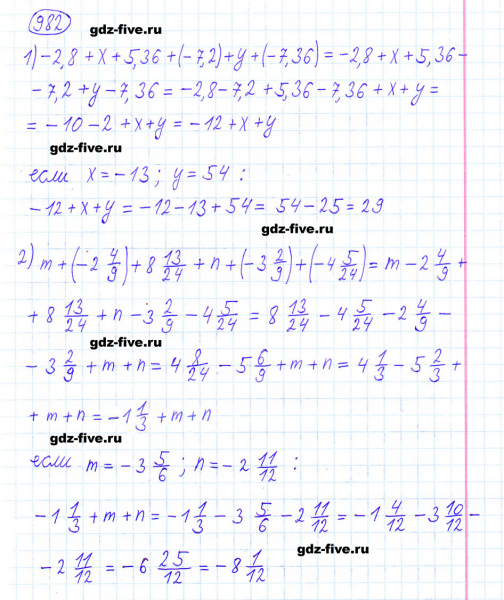 982
gdz-five.ru
1) -2,8 + x + 5,36 + (-7,2) + y + (-7,36) = -2,8 + x + 5,36 -
- 7,2 + y - 7,36 = -2,8 - 7,2 + 5,36 - 7,36 + x + y =
= -10 - 2 + x + y = -12 + x + y
gdz-five.ru
если x = -13; y = 54 :
-12 + x + y = -12 - 13 + 54 = 54 - 25 = 29
gdz-five.ru
2) m + (-2 4/9) + 8 13/24 + n + (-3 2/9) + (-4 5/24) = m - 2 4/9 +
+ 8 13/24 + n - 3 2/9 - 4 5/24 = 8 13/24 - 4 5/24 - 2 4/9 -
gdz-five.ru
- 3 2/9 + m + n = 4 8/24 - 5 6/9 + m + n = 4 1/3 - 5 2/3 +
+ m + n = -1 1/3 + m + n
gdz-five.ru
если m = -3 5/6; n = -2 11/12 :
-1 1/3 + m + n = -1 1/3 - 3 5/6 - 2 11/12 = -1 4/12 - 3 10/12 -
gdz-five.ru
- 2 11/12 = -6 25/12 = -8 1/12